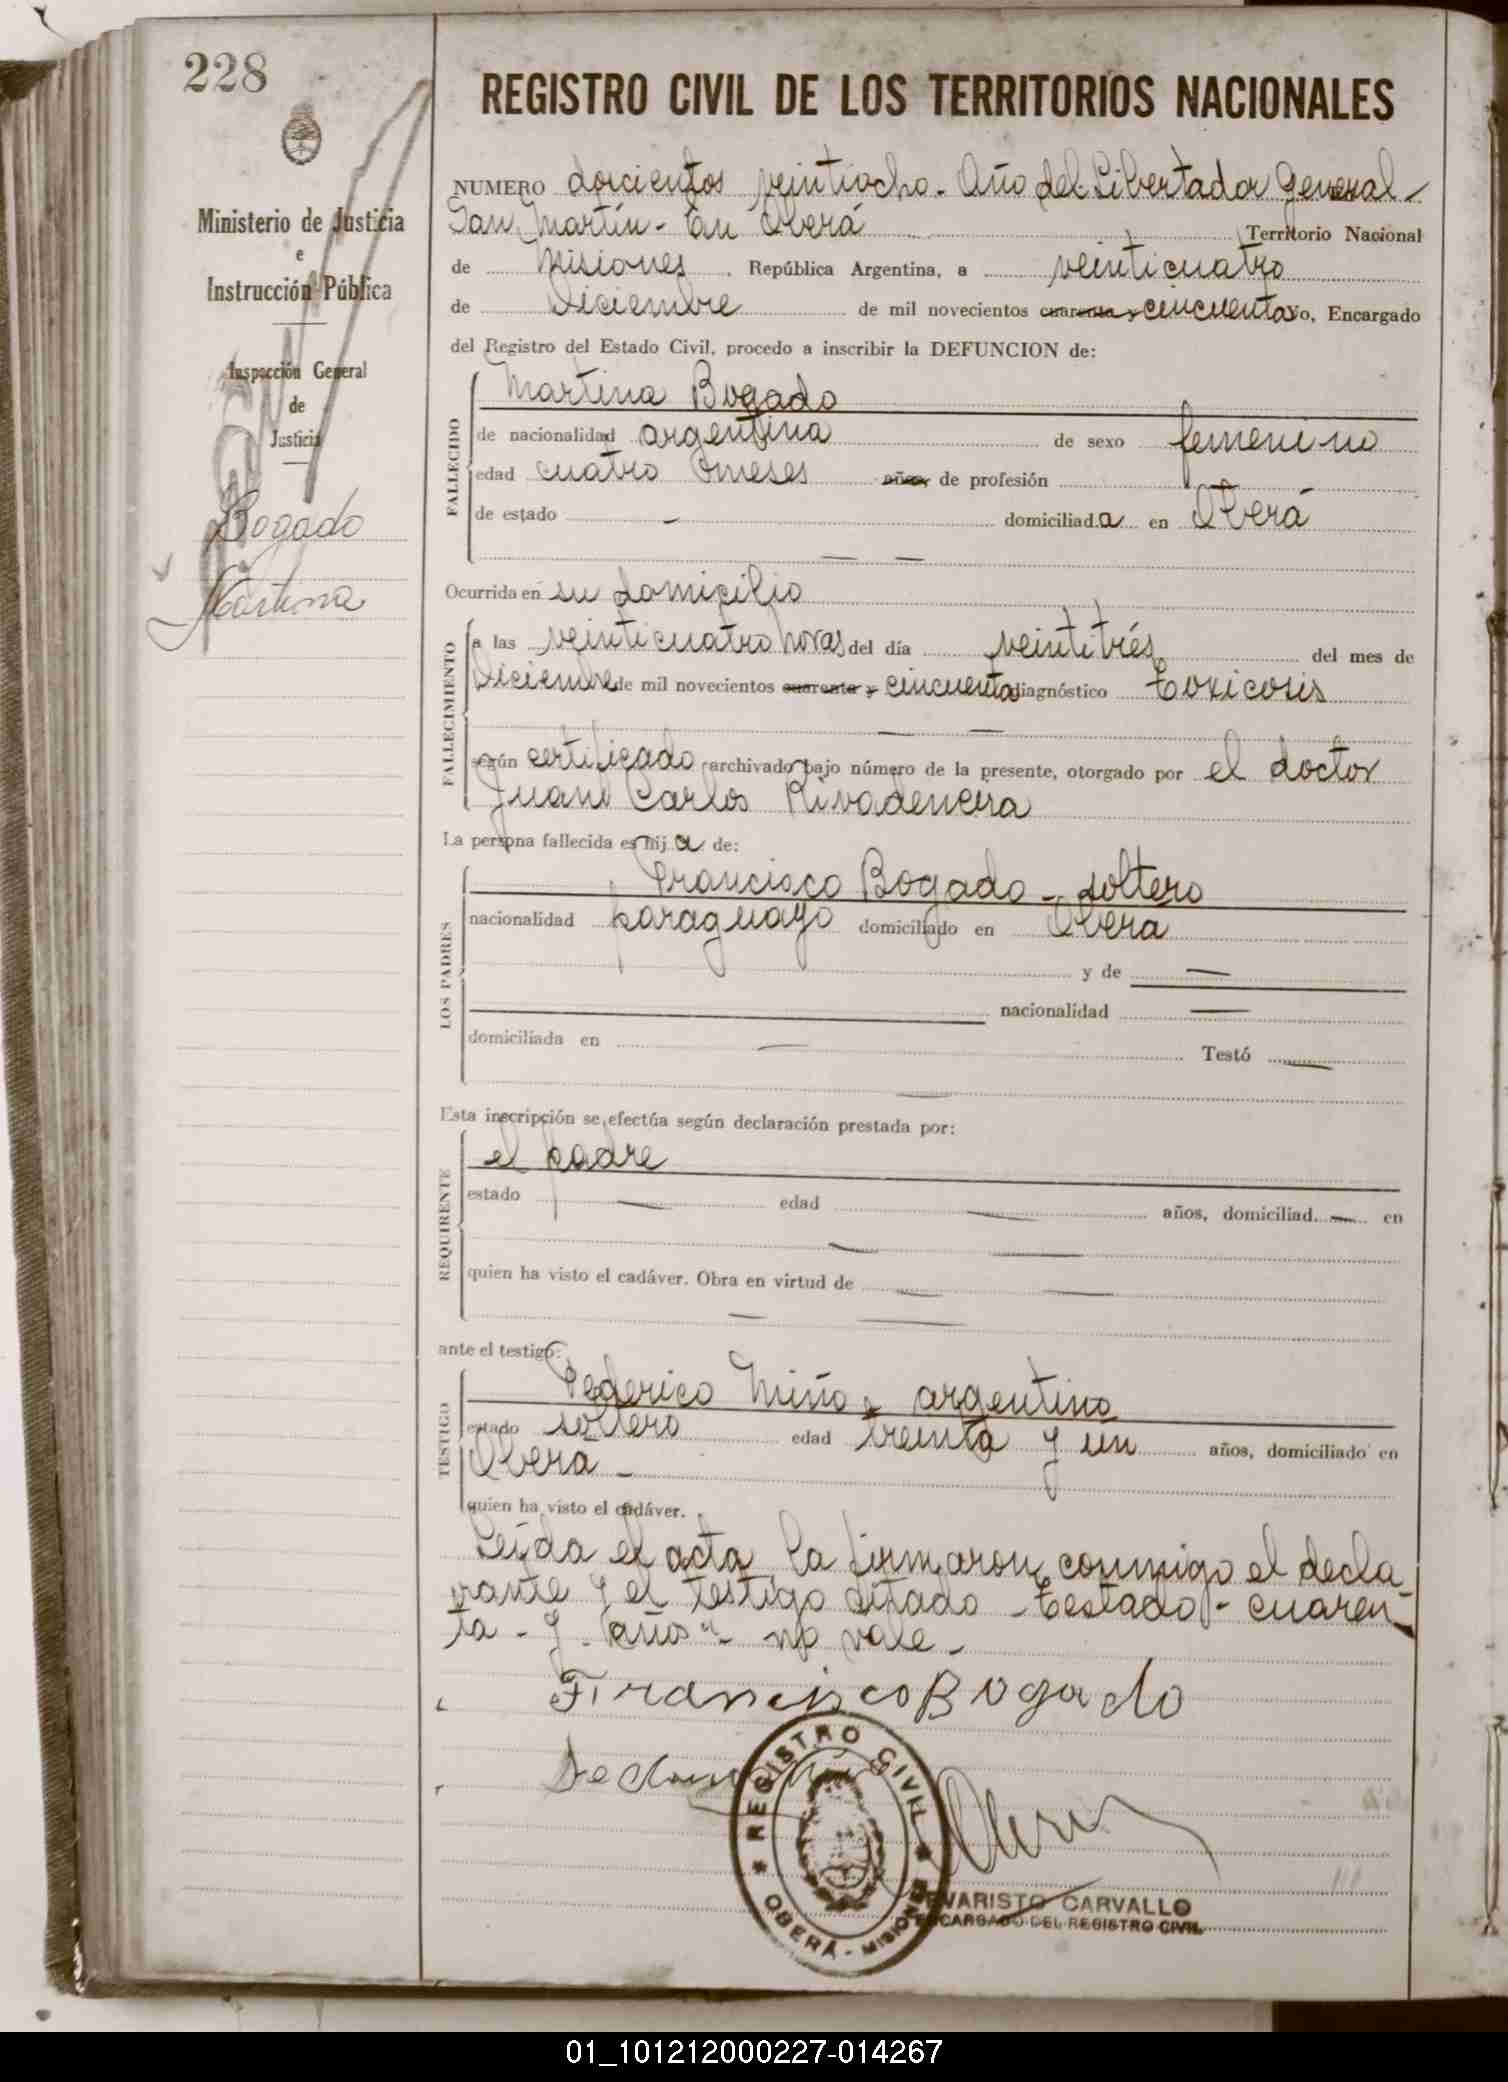 228
REGISTRO CIVIL DE LOS TERRITORIOS NACIONALES
Ministerio de Justicia
e
Instrucción Pública
Inspección General
de
Justicia
Bogado
Martina
NUMERO doscientos veintiocho - Año del Libertador General -
San Martín - En Oberá Territorio Nacional
de Misiones, República Argentina, a veinticuatro
de Diciembre de mil novecientos cuarenta y cincuenta Yo, Encargado
del Registro del Estado Civil, procedo a inscribir la DEFUNCION de:
FALLECIDO
Martina Bogado
de nacionalidad argentina de sexo femenino
edad cuatro meses años de profesión
de estado - domiciliada en Oberá
Ocurrida en su domicilio
FALLECIMIENTO
a las veinticuatro horas del día veintitrés del mes de
Diciembre de mil novecientos cuarenta y cincuenta diagnóstico toxicosis
según certificado archivado bajo número de la presente, otorgado por el doctor
Juan Carlos Rivadeneira
La persona fallecida es hija de:
LOS PADRES
Francisco Bogado - soltero
nacionalidad paraguayo domiciliado en Oberá
y de —
nacionalidad —
domiciliada en — Testó —
Esta inscripción se efectúa según declaración prestada por:
REQUIRENTE
el padre
estado — edad — años, domiciliad — en
quien ha visto el cadáver. Obra en virtud de — —
ante el testigo:
TESTIGO
Federico Miño - argentino
estado soltero edad treinta y un años, domiciliado en
Oberá -
quien ha visto el cadáver.
Leída el acta, la firmaron conmigo el decla-
rante y el testigo citado - testado - cuaren-
ta - y - años" - no vale -
Francisco Bogado
REGISTRO CIVIL
OBERÁ - MISIONES
EVARISTO CARVALLO
ENCARGADO DEL REGISTRO CIVIL
01_101212000227-014267